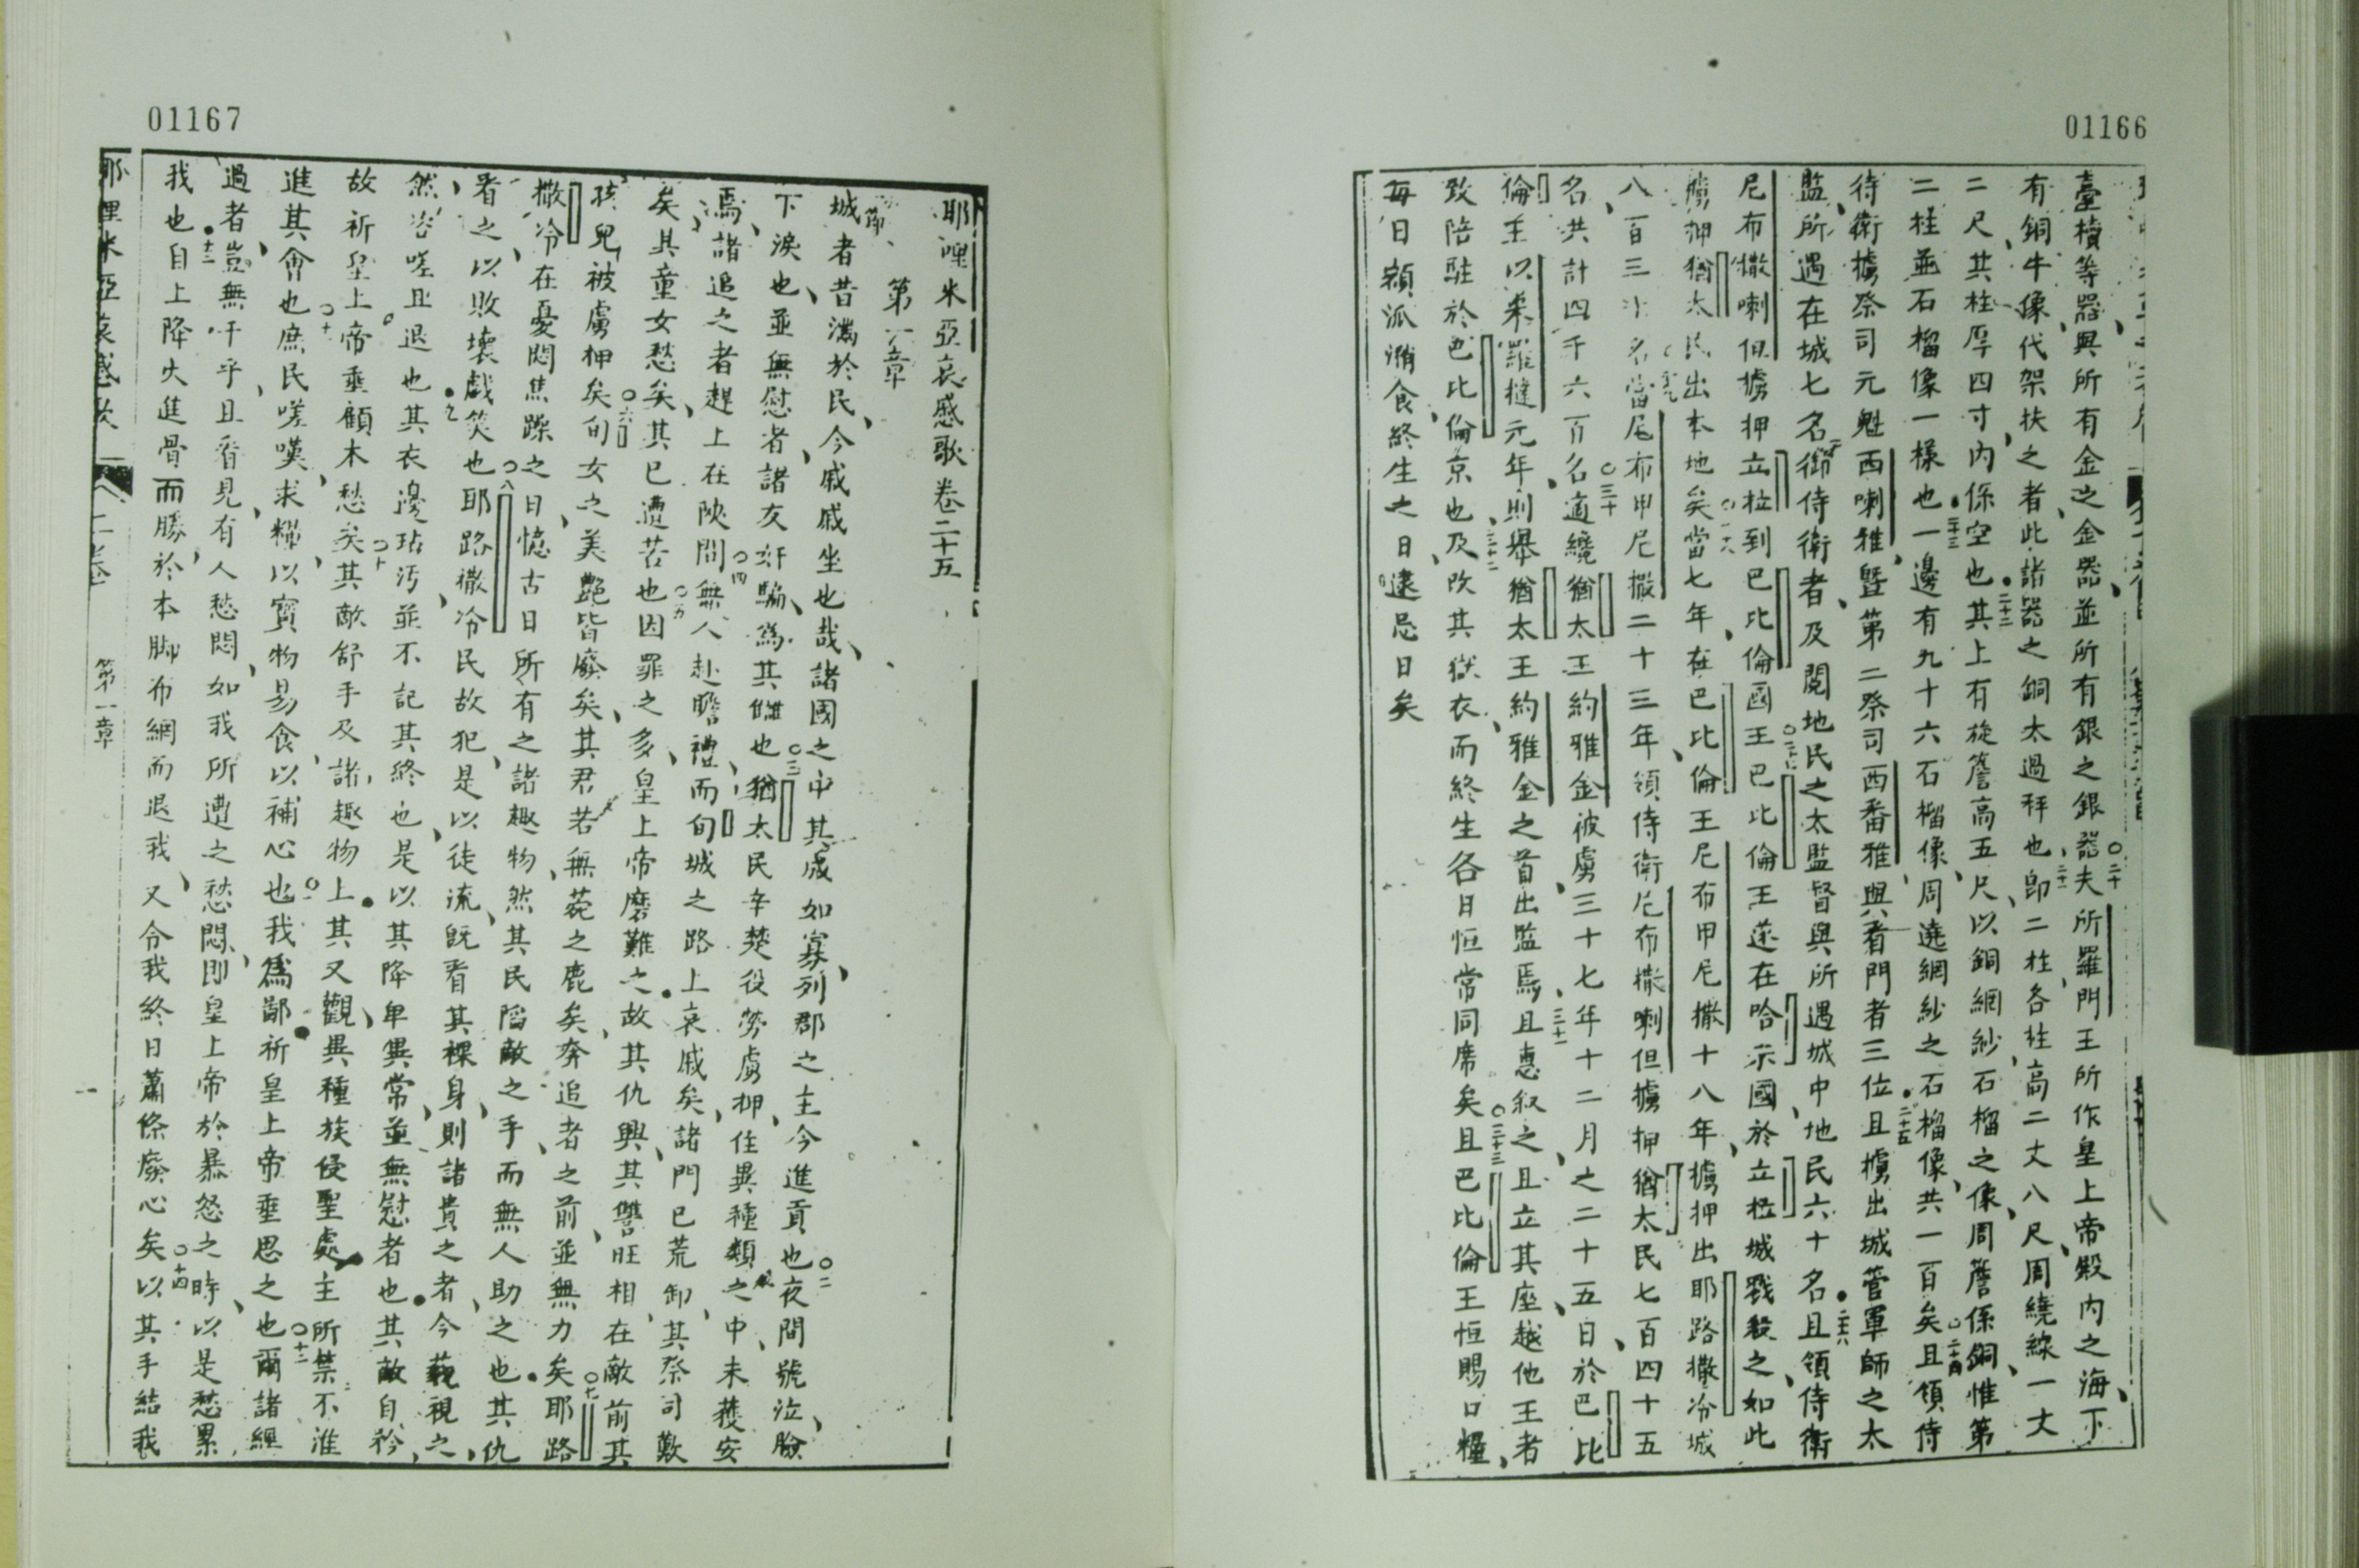 01166
臺檟等器與所有金之金器並所有銀之銀器夫所羅門王所作皇上帝殿內之海下
有銅牛像代架扶之者此諸器之銅太過秤也卽二柱各柱高二丈八尺周繞線一丈
二尺其柱厚四寸內係空也其上有旋簷高五尺以銅網紗石榴之像周簷係銅惟第
二柱並石榴像一樣也一邊有九十六石榴像周遶網紗之石榴像共一百矣且領侍
待衛擄祭司元魁西喇雅暨第二祭司西番雅與看門者三位且擄出城管軍師之太
監所遇在城七名御侍衛者及閱地民之太監督與所遇城中地民六十名且領侍衛
尼布撒喇但擄押立拉到巴比倫國王巴比倫王遂在哈示國於立拉城戮殺之如此
擄押猶太民出本地矣當七年在巴比倫王尼布甲尼撒十八年擄押出耶路撒冷城
八百三十二名當尼布甲尼撒二十三年領侍衛尼布撒喇但擄押猶太民七百四十五
名共計四千六百名適纔猶太王約雅金被虜三十七年十二月之二十五日於巴比
倫王以米羅撻元年則舉猶太王約雅金之首出監焉且惠叙之且立其座越他王者
致陪駐於巴比倫京也及改其獄衣而終生各日恒常同席矣且巴比倫王恒賜口糧
每日額派消食終生之日逮忌日矣
01167
耶哩米亞哀慼歌卷二十五
第一章
城者昔滿於民今戚戚坐也哉諸國之中其成如寡列郡之主今進貢也夜間號泣臉
下淚也並無慰者諸友奸騙為其讎也猶太民辛楚役勞虜押住異種類之中未獲安
焉諸追之者趕上在陝間無人赴瞻禮而旬城之路上哀戚矣諸門已荒卸其祭司歎
矣其童女愁矣其已遭苦也因罪之多皇上帝磨難之故其仇興其讐旺相在敵前其
孩兒被虜押矣旬女之美艷皆廢矣其君若無菀之鹿矣奔追者之前並無力矣耶路
撒冷在憂悶焦躁之日憶古日所有之諸趣物然其民陷敵之手而無人助之也其仇
看之以敗壞戲笑也耶路撒冷民故犯是以徒流旣看其裸身則諸貴之者今藐視之
然咨嗟且退也其衣邊玷汚並不記其終也是以其降卑異常並無慰者也其敵自矜
故祈皇上帝垂顧本愁矣其敵舒手及諸趣物上其又觀異種族侵聖處主所禁不准
進其會也庶民嗟嘆求糧以寳物易食以補心也我為鄙祈皇上帝垂思之也爾諸經
過者豈無干乎且看見有人愁悶如我所遭之愁悶卽皇上帝於暴怒之時以是愁累
我也自上降火進骨而勝於本脚布網而退我又令我終日蕭條廢心矣以其手結我
耶哩米亞哀慼歌
第一章